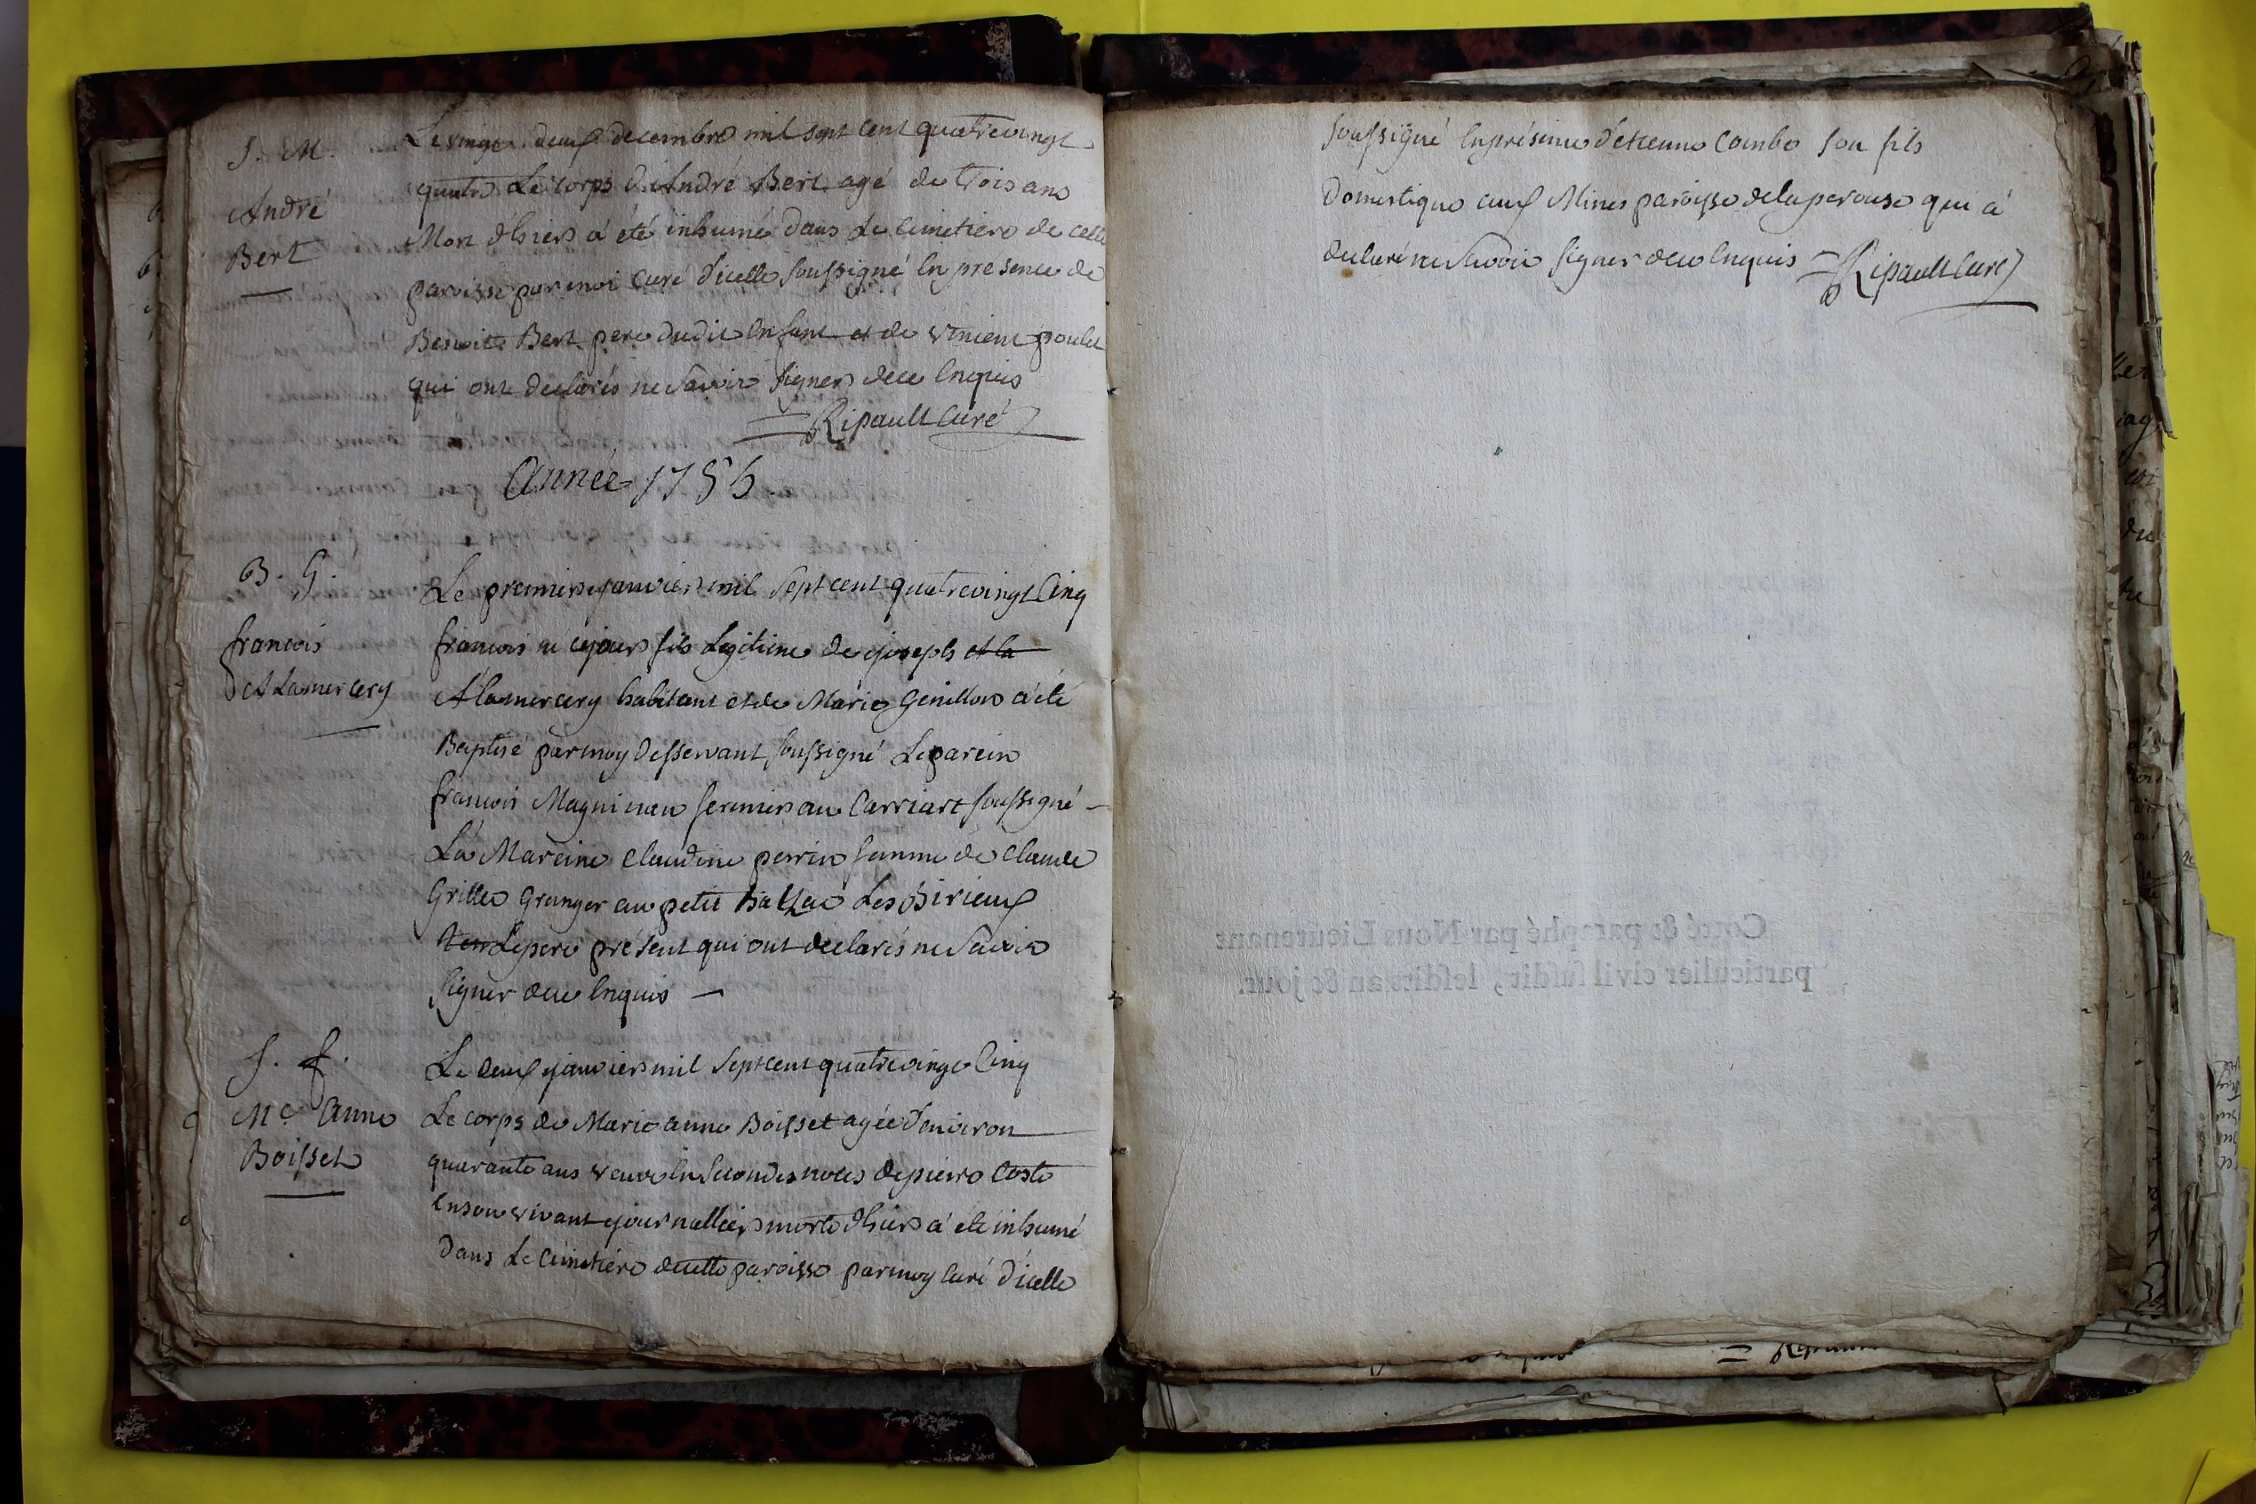 S. M.
André
Bert
Le vingt deux decembre mil sept cent quatrevingt
quatre Le corps d'André Bert agé de trois ans
Mort d'hiers a été inhumé dans Le Cimetiere de cette
paroisse par moi Curé d'icelle soussigné En presence de
Benoit Bert pere dudit Enfant et de vincent poulet
qui ont declarés ne savoir signer de ce Enquis
Ripault Curé
Année 1785
B. G.
francois
A Lamercery
Le premier janvier mil sept cent quatrevingt Cinq
francois né ce jour fils Legitime de joseph et la
A lamercery habitant et de Marie Genillon a été
Baptisé par moy desservant soussigné Le parein
francois Magninen fermier au Carriart soussigné
La Mareine Claudine perrin femme de Claude
Grillet Granger au petit Les Birieux
Le pere présent qui ont declarés ne Savoir
signer de ce Enquis
S. f.
Me Anne
Boisset
Le deux janvier mil sept cent quatrevingt Cinq
Le corps de Marie anne Boisset agée d'environ
quarante ans veuve En secondes noces de pierre Coste
En son vivant journallier morte d'hiers a été inhumé
Dans Le Cimetiere de cette paroisse par moy Curé d'icelle
soussigné En présence d'etienne Combe son fils
Domestique aux Mines paroisse de la perouse qui a
declaré ne savoir signer de ce Enquis Ripault Curé
Cotté & paraphé par Nous Lieutenant
particulier civil susdit, lesdits an & jour.